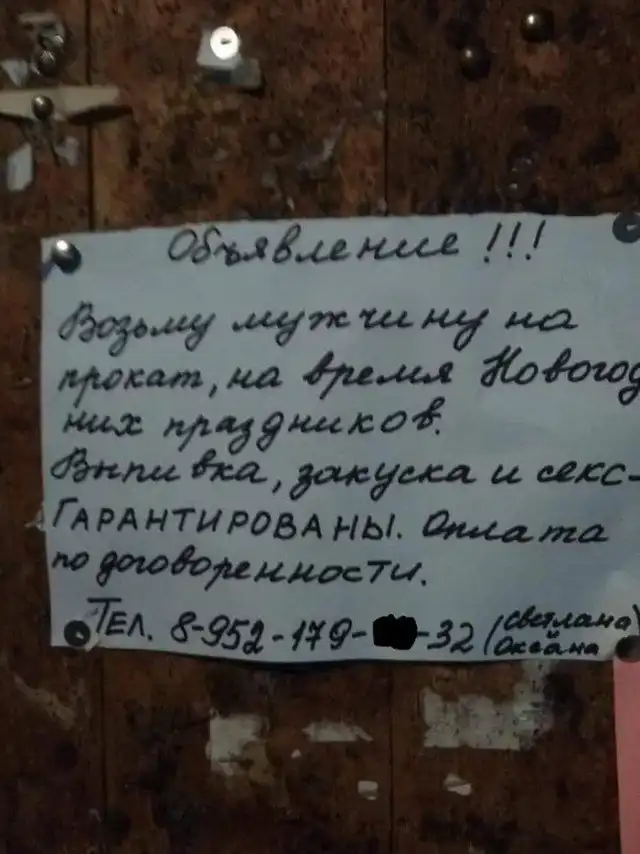 Объявление !!!
Возьму мужчину на
прокат, на время Новогод
них праздников.
Выпивка, закуска и секс-
ГАРАНТИРОВАНЫ. Оплата
по договоренности.
ТЕЛ. 8-952-179- -32 (Светлана)
Оксана